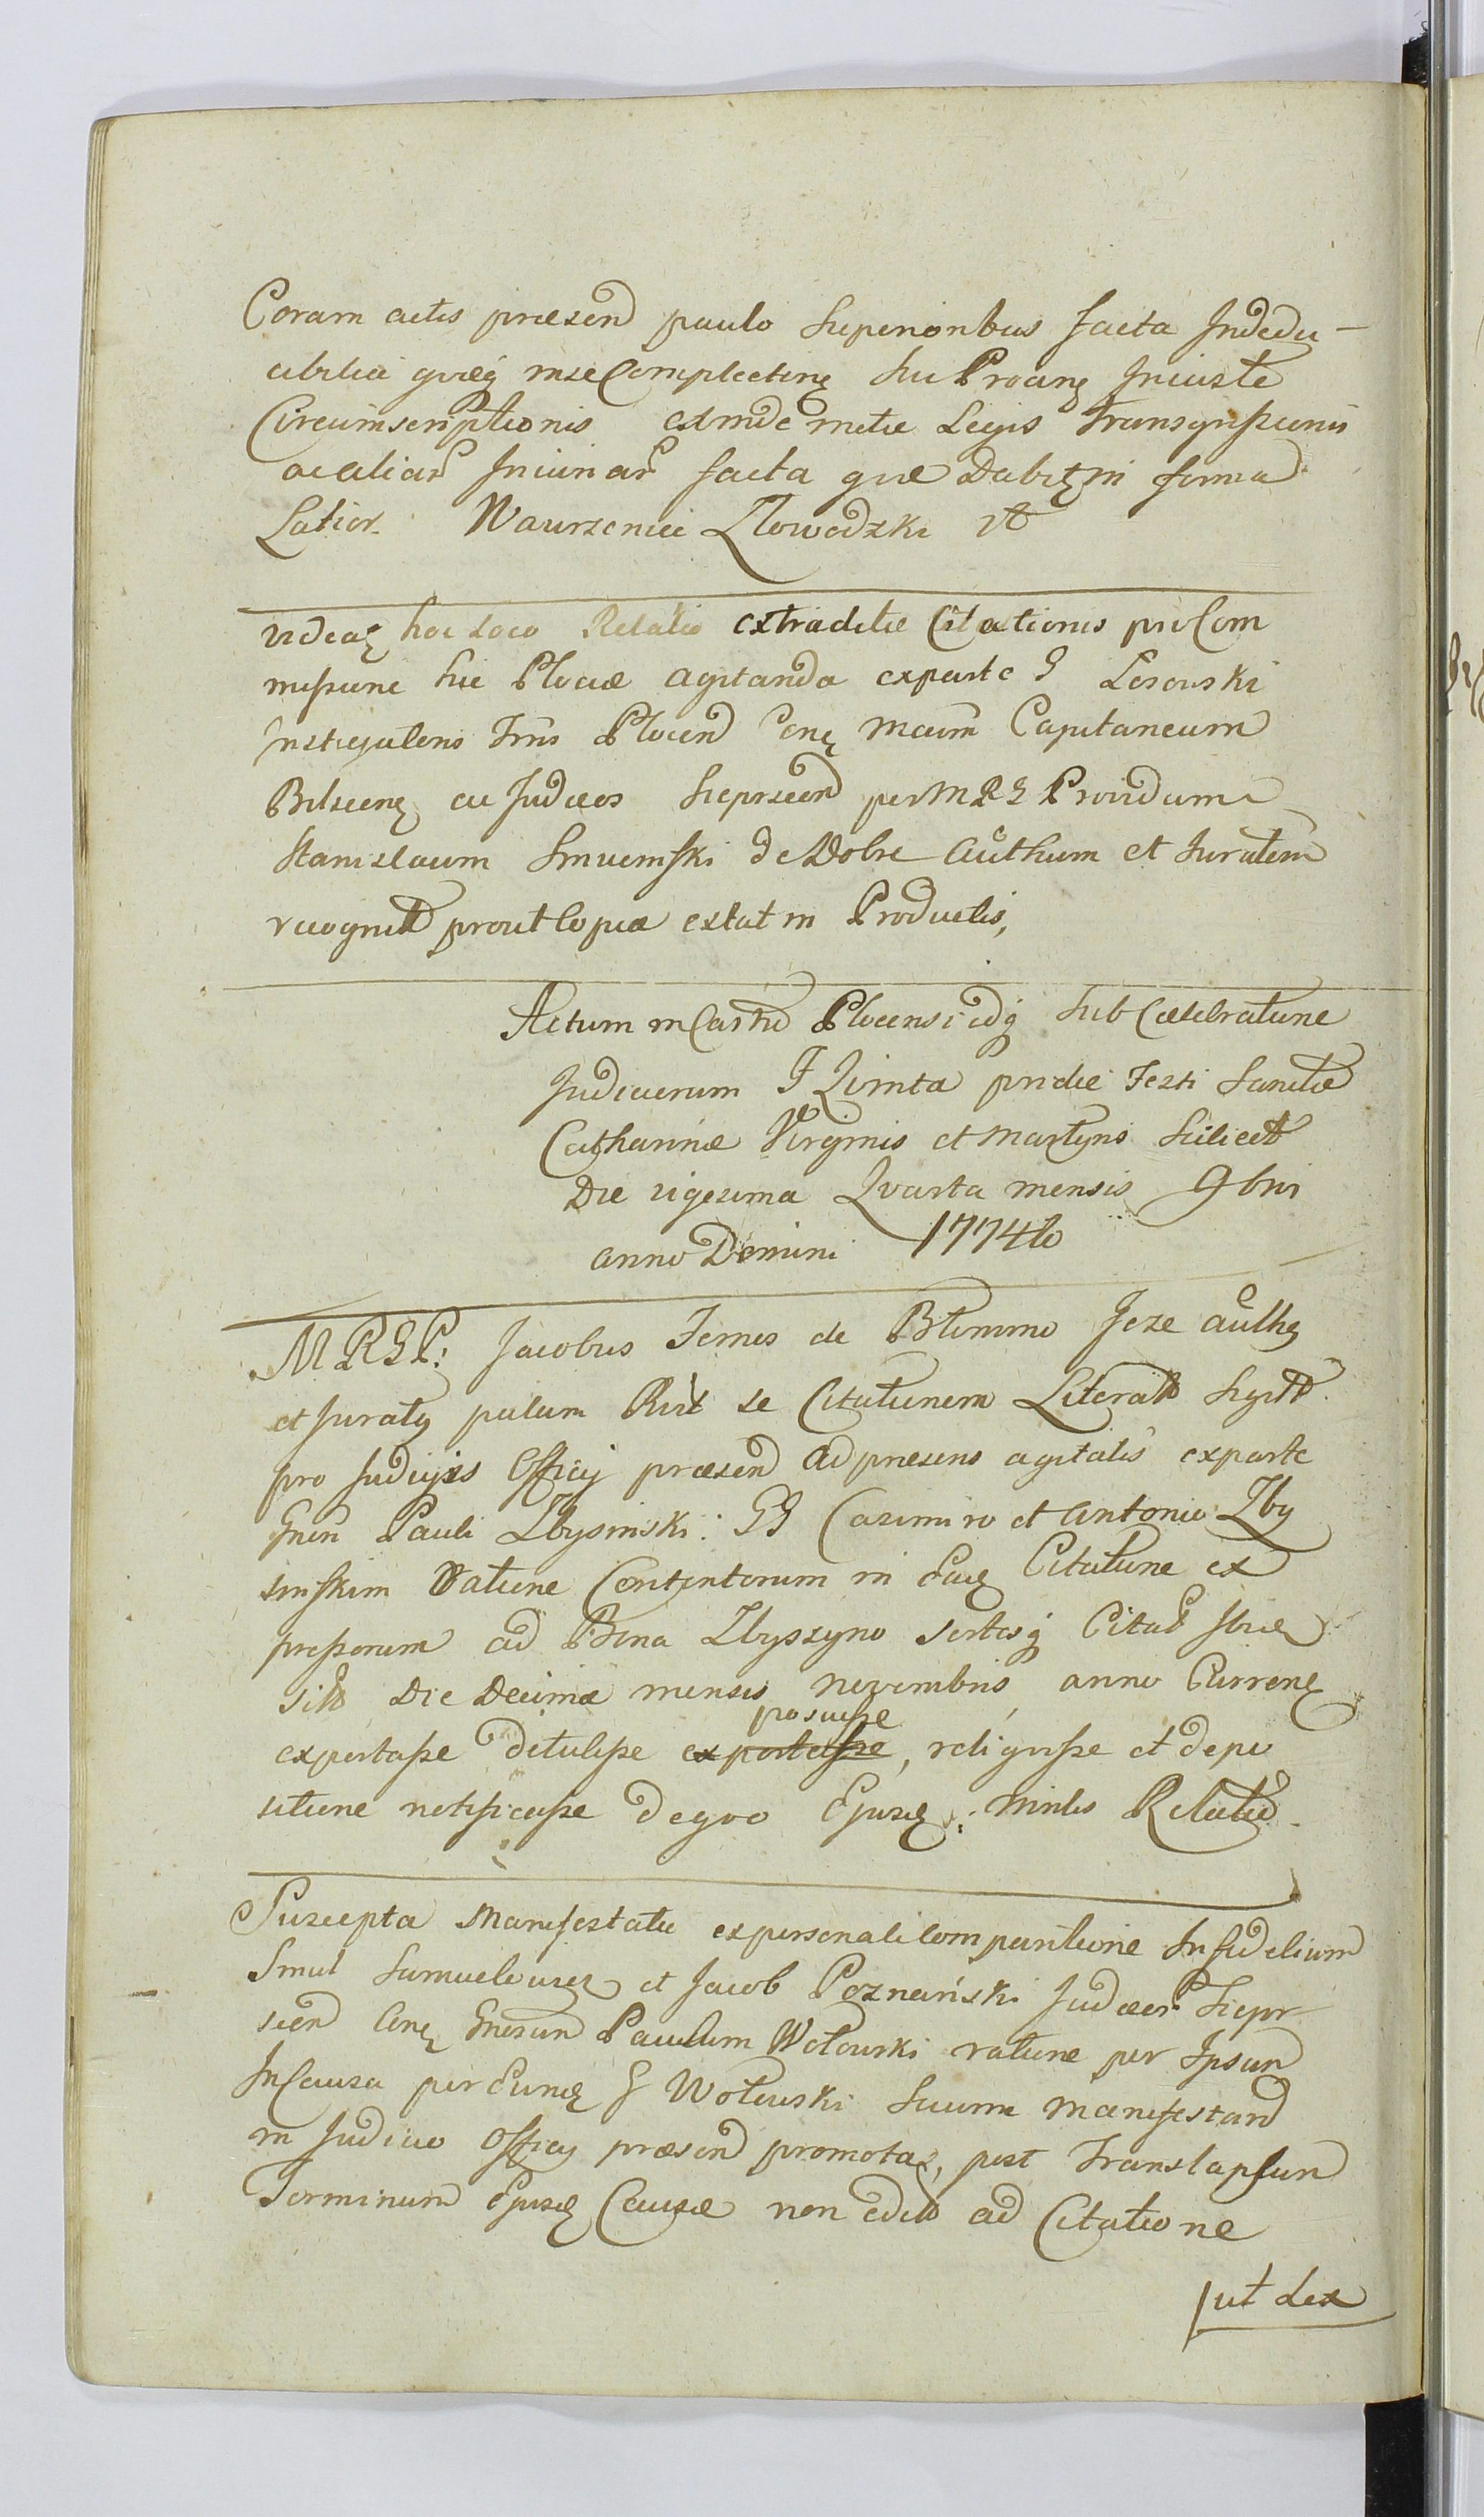 Coram actis præsend paulo superioribus facta Indedu-
cibilia quæq inse Complecteñ sui Procurq Iniuste
Circumscriptionis exinde metu Legis transgressionis
ac aliar Iniuriar facta quæ Dabitq in forma
Latior. Wawrzeniec Zlowodzki
videaq hoc Loco Relatio extraditæ Citationis pro Com
missione hic Plociæ agitanda exparte G Losowski
Instigatens Trns Plocen Conq Mcum Capitaneum
Bilscenq ac Judæos Sieprscen per MRGP Providum
Stanislaum Smuiewski de Dobre Authum et Juratum
recognit prout Copia extat in Productis,
Actum in Castro Plocensi idq sub Cælebratione
Judiciorum F Quinta pridie Festi Sanctæ
Catharinæ Virginis et Martyris Scilicet
Die vigesima Quarta mensis 9bris
anno Domini 1774to
MRGP: Jacobus Femes de Blimmo Jeze authq
et Juratq palam Rcit se Citationem Literalt Sigilt
pro Judicijs Officij præsend ad præsens agitatis exparte
Gneri Pauli Zbysinski: GG Casimiro et Antonio Zby
sinskim Ratione Contentorum in Eaq Citatione ex
pressorum ad Bona Zbyszyno sortesq Citat Ibid
sit Die Decima mensis novembris anno Currenq
exportasse detulisse exportasse posuisse, reliquisse et depo
sitione notificasse de quo Ejusq: Minlis Relatio
Suscepta Manifestatio expersonali Comparitione Infidelium
Smul Samuelowicz et Jacob Poznański Judæor Siepr
scen Conq Gnesum Paulum Wołowski ratione per Ipsum
In Causa per Eunq G Wołowski Suum manifestand
in Judicio Officij præsend promota, post Translapsum
Terminum Ejusq Causæ non edit ad Citatione
ut Lex